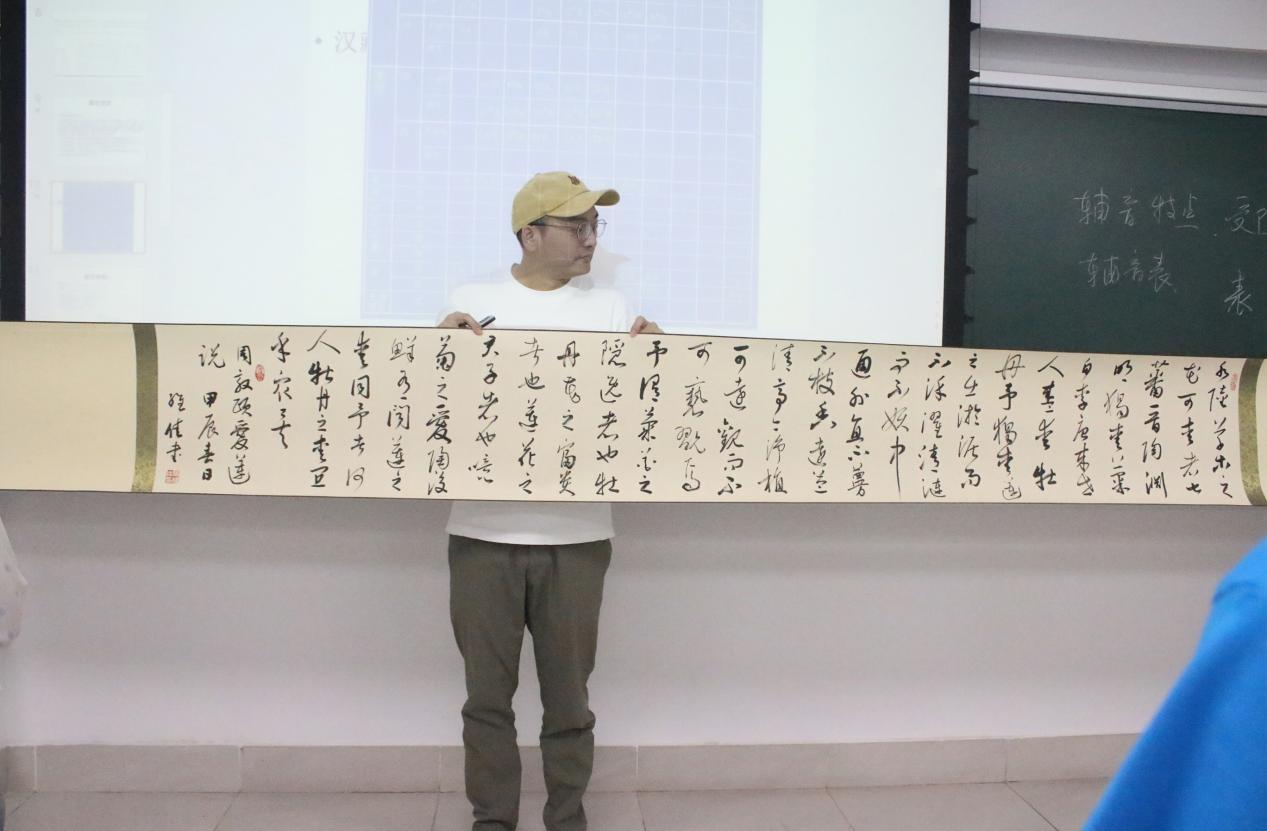 • 汉
辅音特点、受
辅音表
表
水陸草木之
花可愛者甚
蕃晉陶淵
明獨愛菊
自李唐來世
人甚愛牡
丹予獨愛蓮
之出淤泥而
不染濯清漣
而不妖中
通外直不蔓
不枝香遠益
清亭亭淨植
可遠觀而不
可褻翫焉
予謂菊花之
隱逸者也牡
丹花之富貴
者也蓮花之
君子者也噫
菊之愛陶後
鮮有聞蓮之
愛同予者何
人牡丹之愛宜
乎衆矣
周敦頤愛蓮
說 甲辰春日
佳書